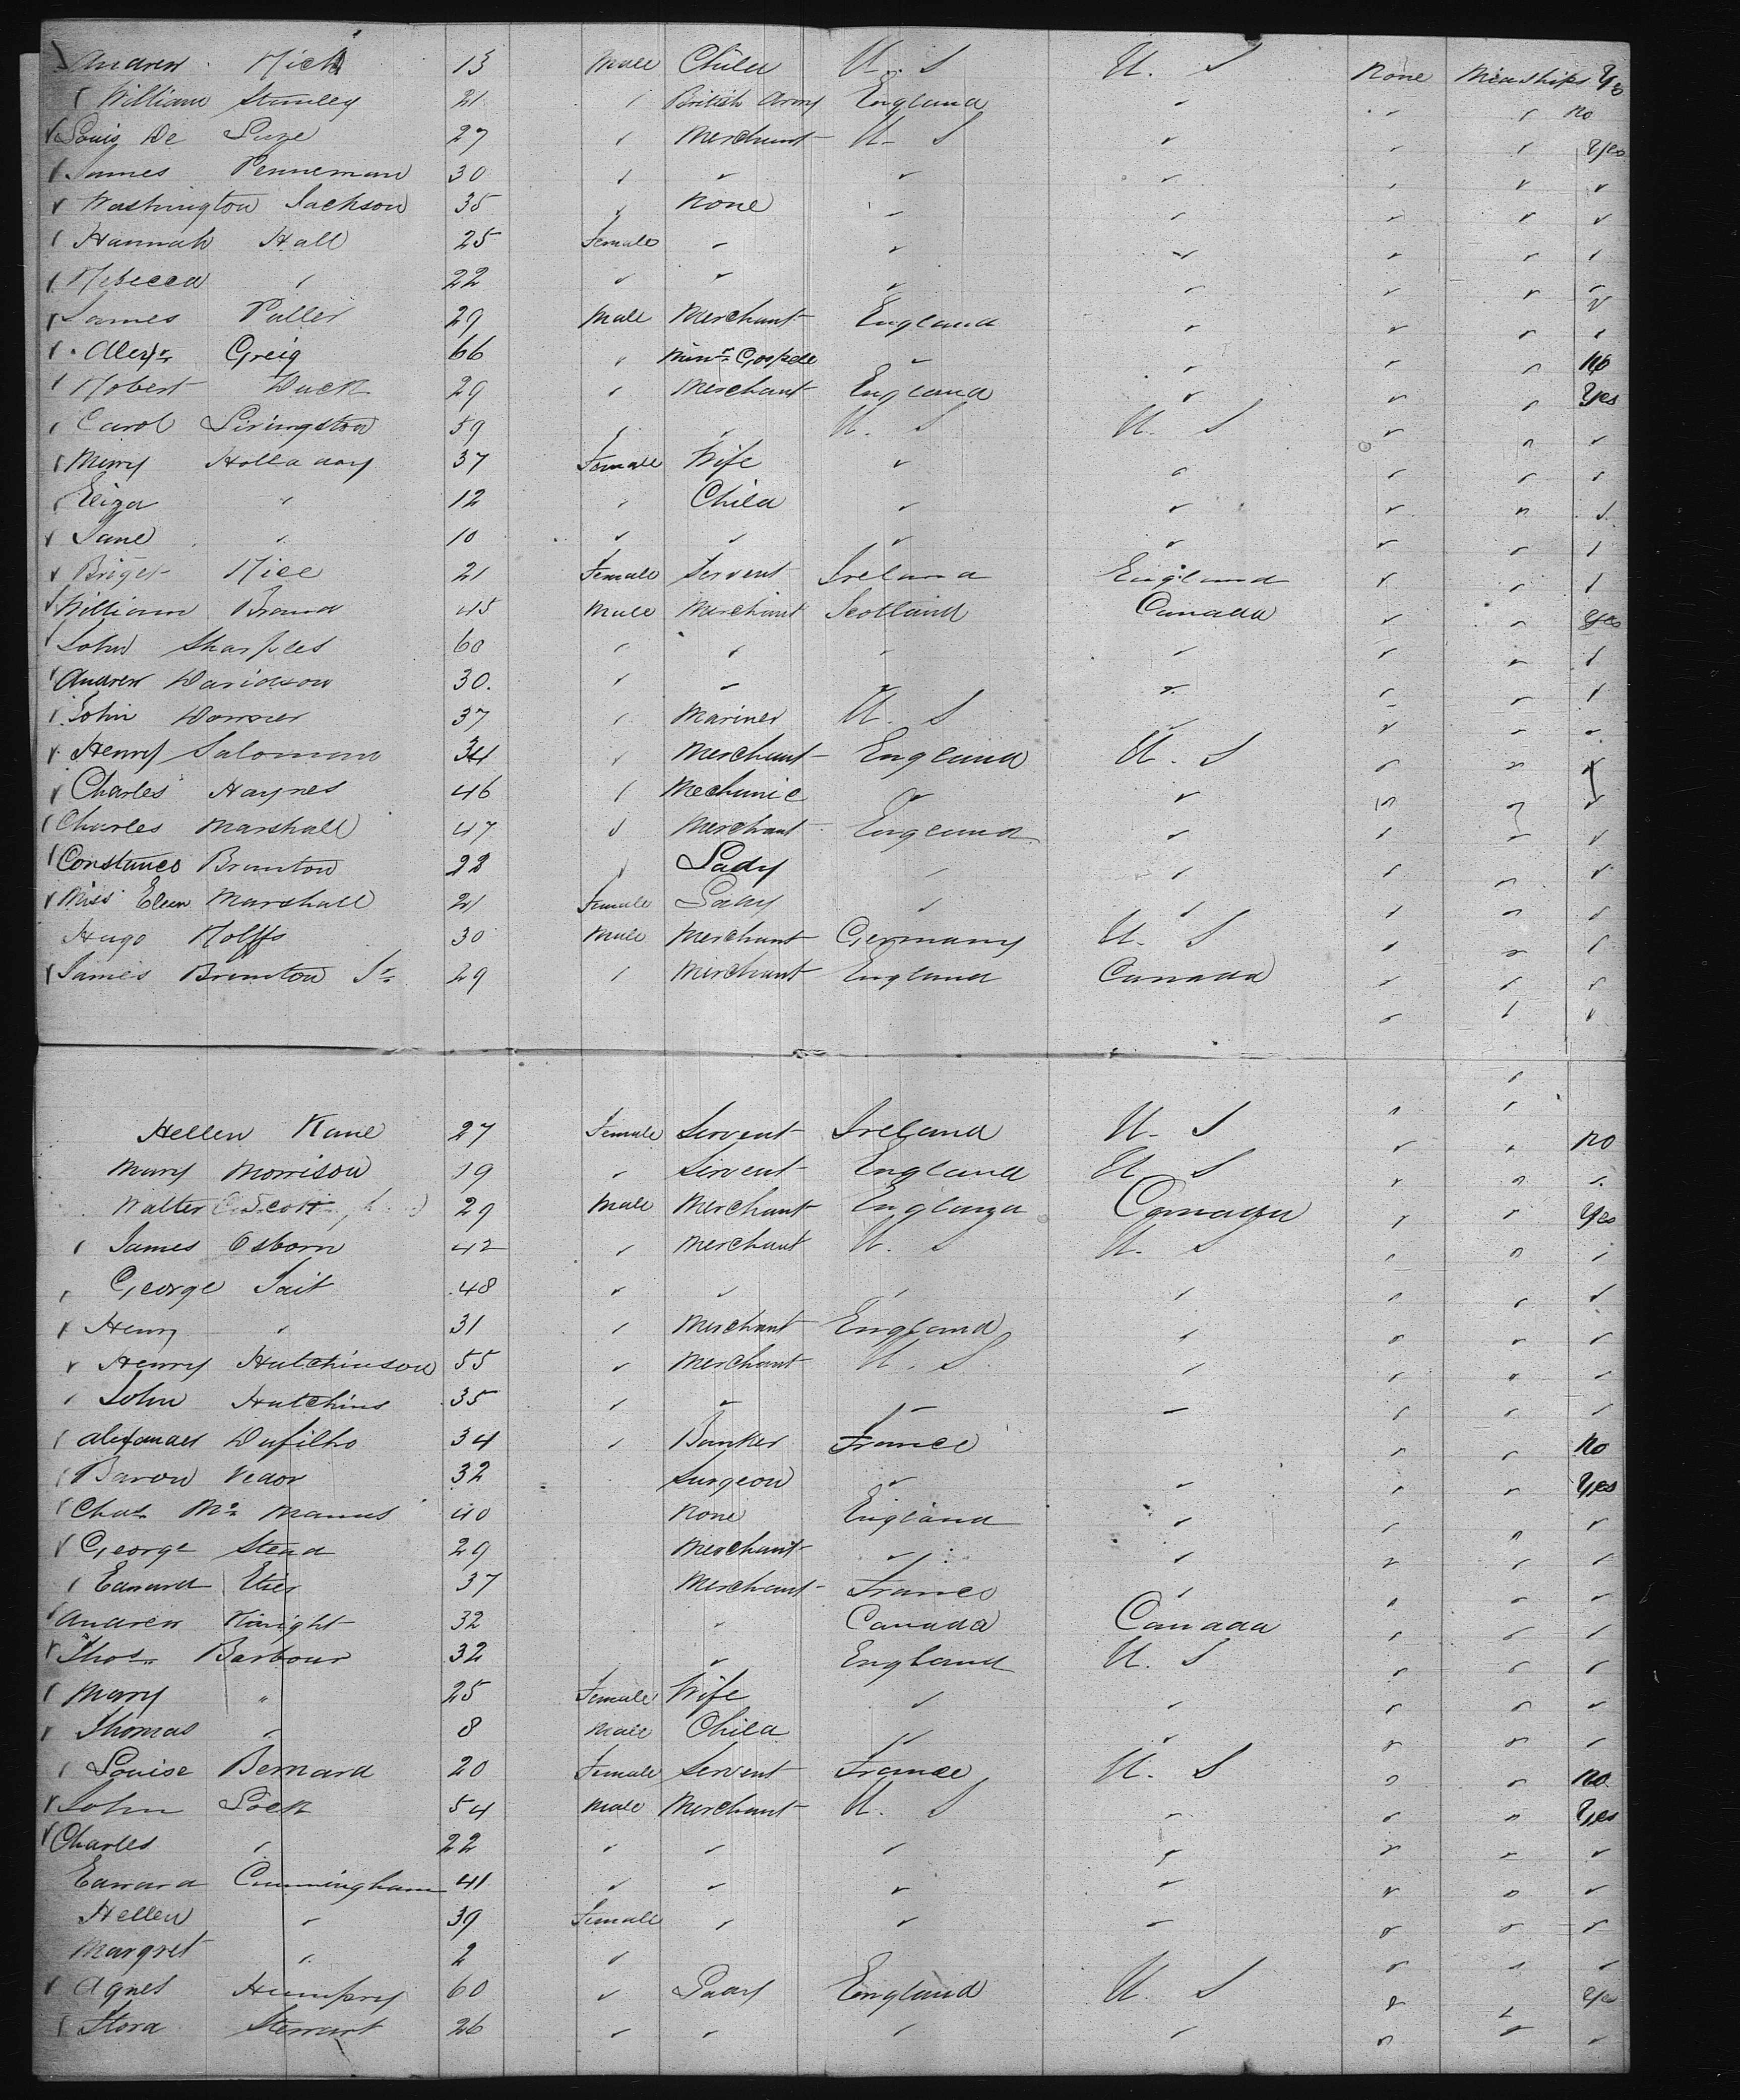 Andrew Rich 13 Male Child U. S U. S None Midships Yes
William Stanley 21 " British Army England " " " no
Louis De Luze 27 " Merchant U- S " " " Yes
James Penneman 30 " " " " " " "
Washington Jackson 35 " None " " " " "
Hannah Hall 25 Female " " " " " "
Rebecca " 22 " " " " " " "
James Puller 29 Male Merchant England " " " "
Alexr Greig 66 " Minr Gospell " " " " No
Robert Duck 29 " Merchant England " " " Yes
Carol Livingston 59 " " U. S U. S " " "
Mary Holladay 37 Female Wife " " " " "
Eliza " 12 " Child " " " " "
Jane " 10 " " " " " " "
Briget Rice 21 Female Servent Ireland England " " "
William Brand 45 Male Merchant Scotland Canada " " Yes
John Sharples 60 " " " " " " "
Andrew Davidson 30. " " " " " " "
John 37 " Mariner U. S " " " "
Henry Salomon 34 " Merchant England U. S " " "
Charles Haynes 46 " Mechanic " " " " "
Charles Marshall 47 " Merchant England " " " "
Constance Brunton 22 " Lady " " " " "
Miss Elen Marshall 21 Female Lady " " " " "
Hugo Rolffs 30 Male Merchant Germany U. S " " "
James Brunton Jr 29 " Merchant England Canada " " "
Hellen Kane 27 Female Servent Ireland U- S " " no
Mary Morrison 19 " Servent England U S " " "
Walter Scott 29 Male Merchant England Canada " " Yes
James Osborn 42 " Merchant U. S U. S " " "
George Tait 48 " " " " " " "
Henry " 31 " Merchant England " " " "
Henry Hutchinson 55 " Merchant U. S " " " "
John Hutchins 35 " " " " " " "
Alexander Dufilho 34 " Banker France " " No
Baron 32 Surgeon " " " " Yes
Chas Mc Manus 40 None England " " " "
George Stead 29 Merchant " " " " "
Edward 37 Merchant France " " " "
Andrew Knight 32 " Canada Canada " " "
Thos Barbour 32 " England U. S " " "
Mary " 25 Female Wife " " " " "
Thomas " 8 Male Child " " " " "
Louise Bernard 20 Female Servent France U. S " " no
John Lock 54 Male Merchant U. S " " " Yes
Charles " 22 " " " " " " "
Edward Cunningham 41 " " " " " " "
Hellen " 39 Female " " " " " "
Margret " 2 " " " "
Agnes Humpry 60 " Lady England U. S " " Yes
Flora Stewart 26 " " " " " " "